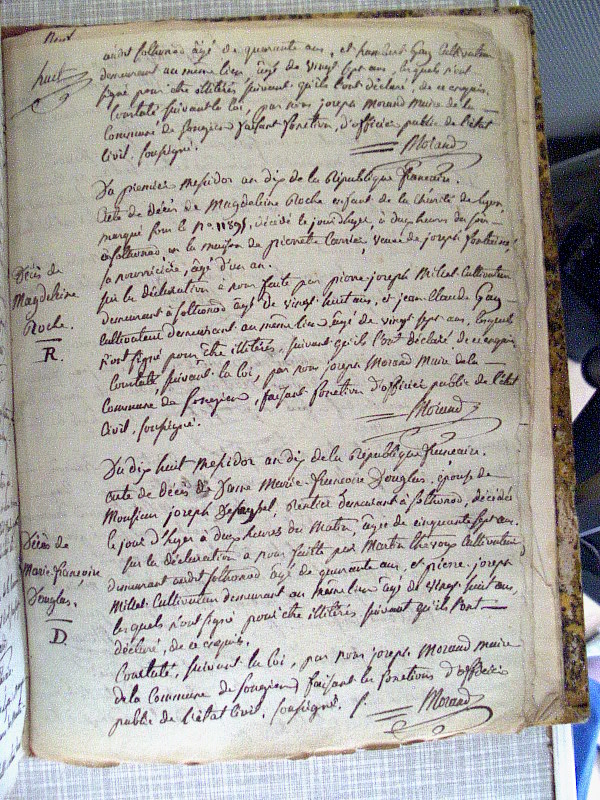 huit
audit Sothonod âgé de quarante ans, et Gay Cultivateur
demeurant au même lieu, âgé de vingt sept ans, lesquels n'ont
signé pour être illiterés suivant qu'ils l'ont déclaré, de ce enquis.
Constaté suivant la loi, par nous joseph Morand Maire de la
Commune de Songieu faisant fonction d'officier public de l'état
Civil, soussigné.
Morand
Du premier Messidor an dix de la République française.
Acte de décès de Magdeleine Roche enfant de la charité de Lyon
marqué sous le N.º décédé le jour d'hyer, à deux heures du soir
à Sothonod, en la maison de pierrette veuve de joseph
sa nourricière, âgé d'un an.
Décès de
Magdeleine
Roche.
R.
sur la déclaration à nous faite par pierre joseph Millet Cultivateur
demeurant à Sothonod âgé de vingt huit ans, et jean Claude Gay
Cultivateur demeurant au même lieu âgé de vingt sept ans, lesquels
n'ont signé pour être illiterés, suivant qu'ils l'ont déclaré de ce enquis
Constaté suivant la loi, par nous joseph Morand Maire de la
Commune de Songieu, faisant fonction d'officier public de l'état
Civil, soussigné.
Morand
Du dix huit Messidor an dix de la République française.
acte de décès de Dame Marie françoise Douglas, épouse de
Monsieur joseph Rentier demeurant à Sothonod, décédée
le jour d'hyer à deux heures du Matin, âgée de cinquante sept ans.
Décès de
Marie françoise
Douglas.
D.
sur la déclaration à nous faitte par Martin Cultivateur
demeurant audit Sothonod âgé de quarante ans, et pierre joseph
Millet Cultivateur demeurant au même lieu âgé de vingt huit ans,
lesquels n'ont signé pour être illiterés suivant qu'ils l'ont
déclaré, de ce enquis.
Constaté, suivant la loi, par nous joseph Morand maire
de la Commune de Songieu faisant les fonctions d'officier
public de l'état Civil, soussigné.
Morand